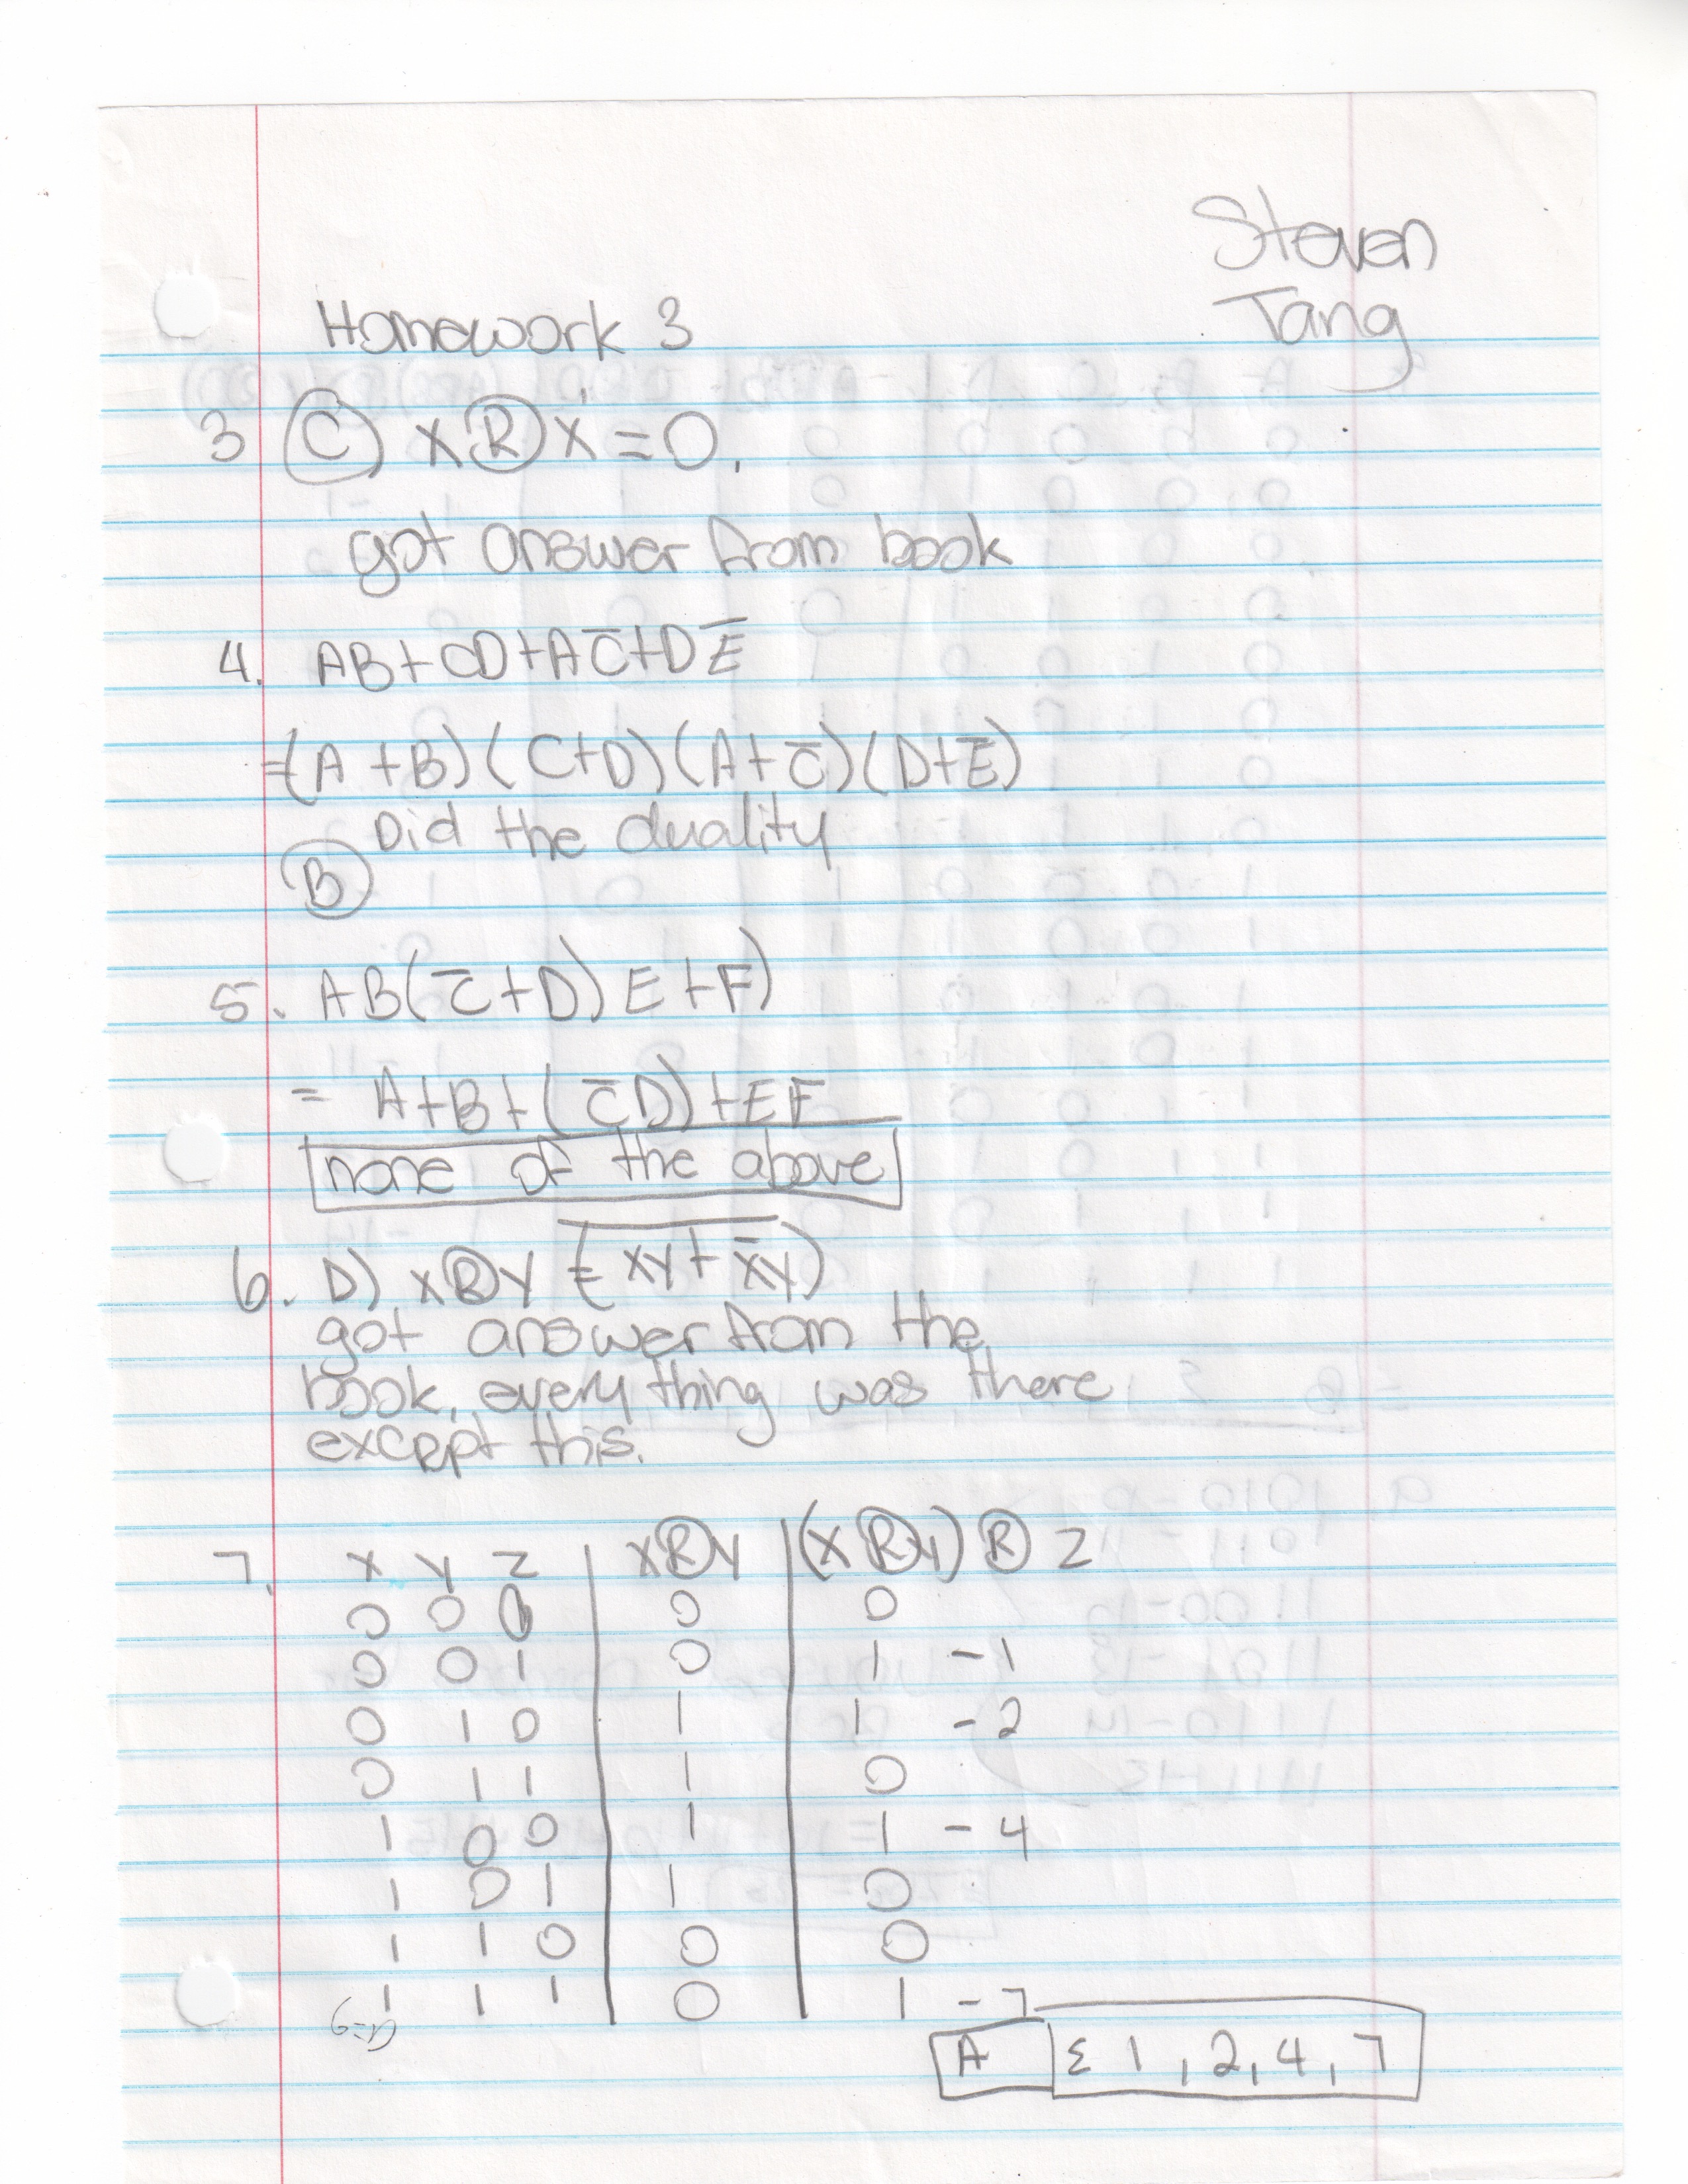 Steven
Tang
Homework 3
3 Ⓒ XⓇX' = 0.
got answer from book
4. AB + CD + AC̅ + DE̅
= (A + B)(C + D)(A + C̅)(D + E̅)
Did the duality
Ⓑ
5. AB(C̅ + D)E + F)
= A + B + (C̅D) + EF
none of the above
6. D) XⓇY = (XY + X̅Y)
got answer from the
book, everything was there
except this.
7. X Y Z | XⓇY | (XⓇY)Ⓡ Z
0 0 0 | 0 | 0
0 0 1 | 0 | 1 - 1
0 1 0 | 1 | 1 - 2
0 1 1 | 1 | 0
1 0 0 | 1 | 1 - 4
1 0 1 | 1 | 0
1 1 0 | 0 | 0
1 1 1 | 0 | 1 - 7
A | Σ 1, 2, 4, 7